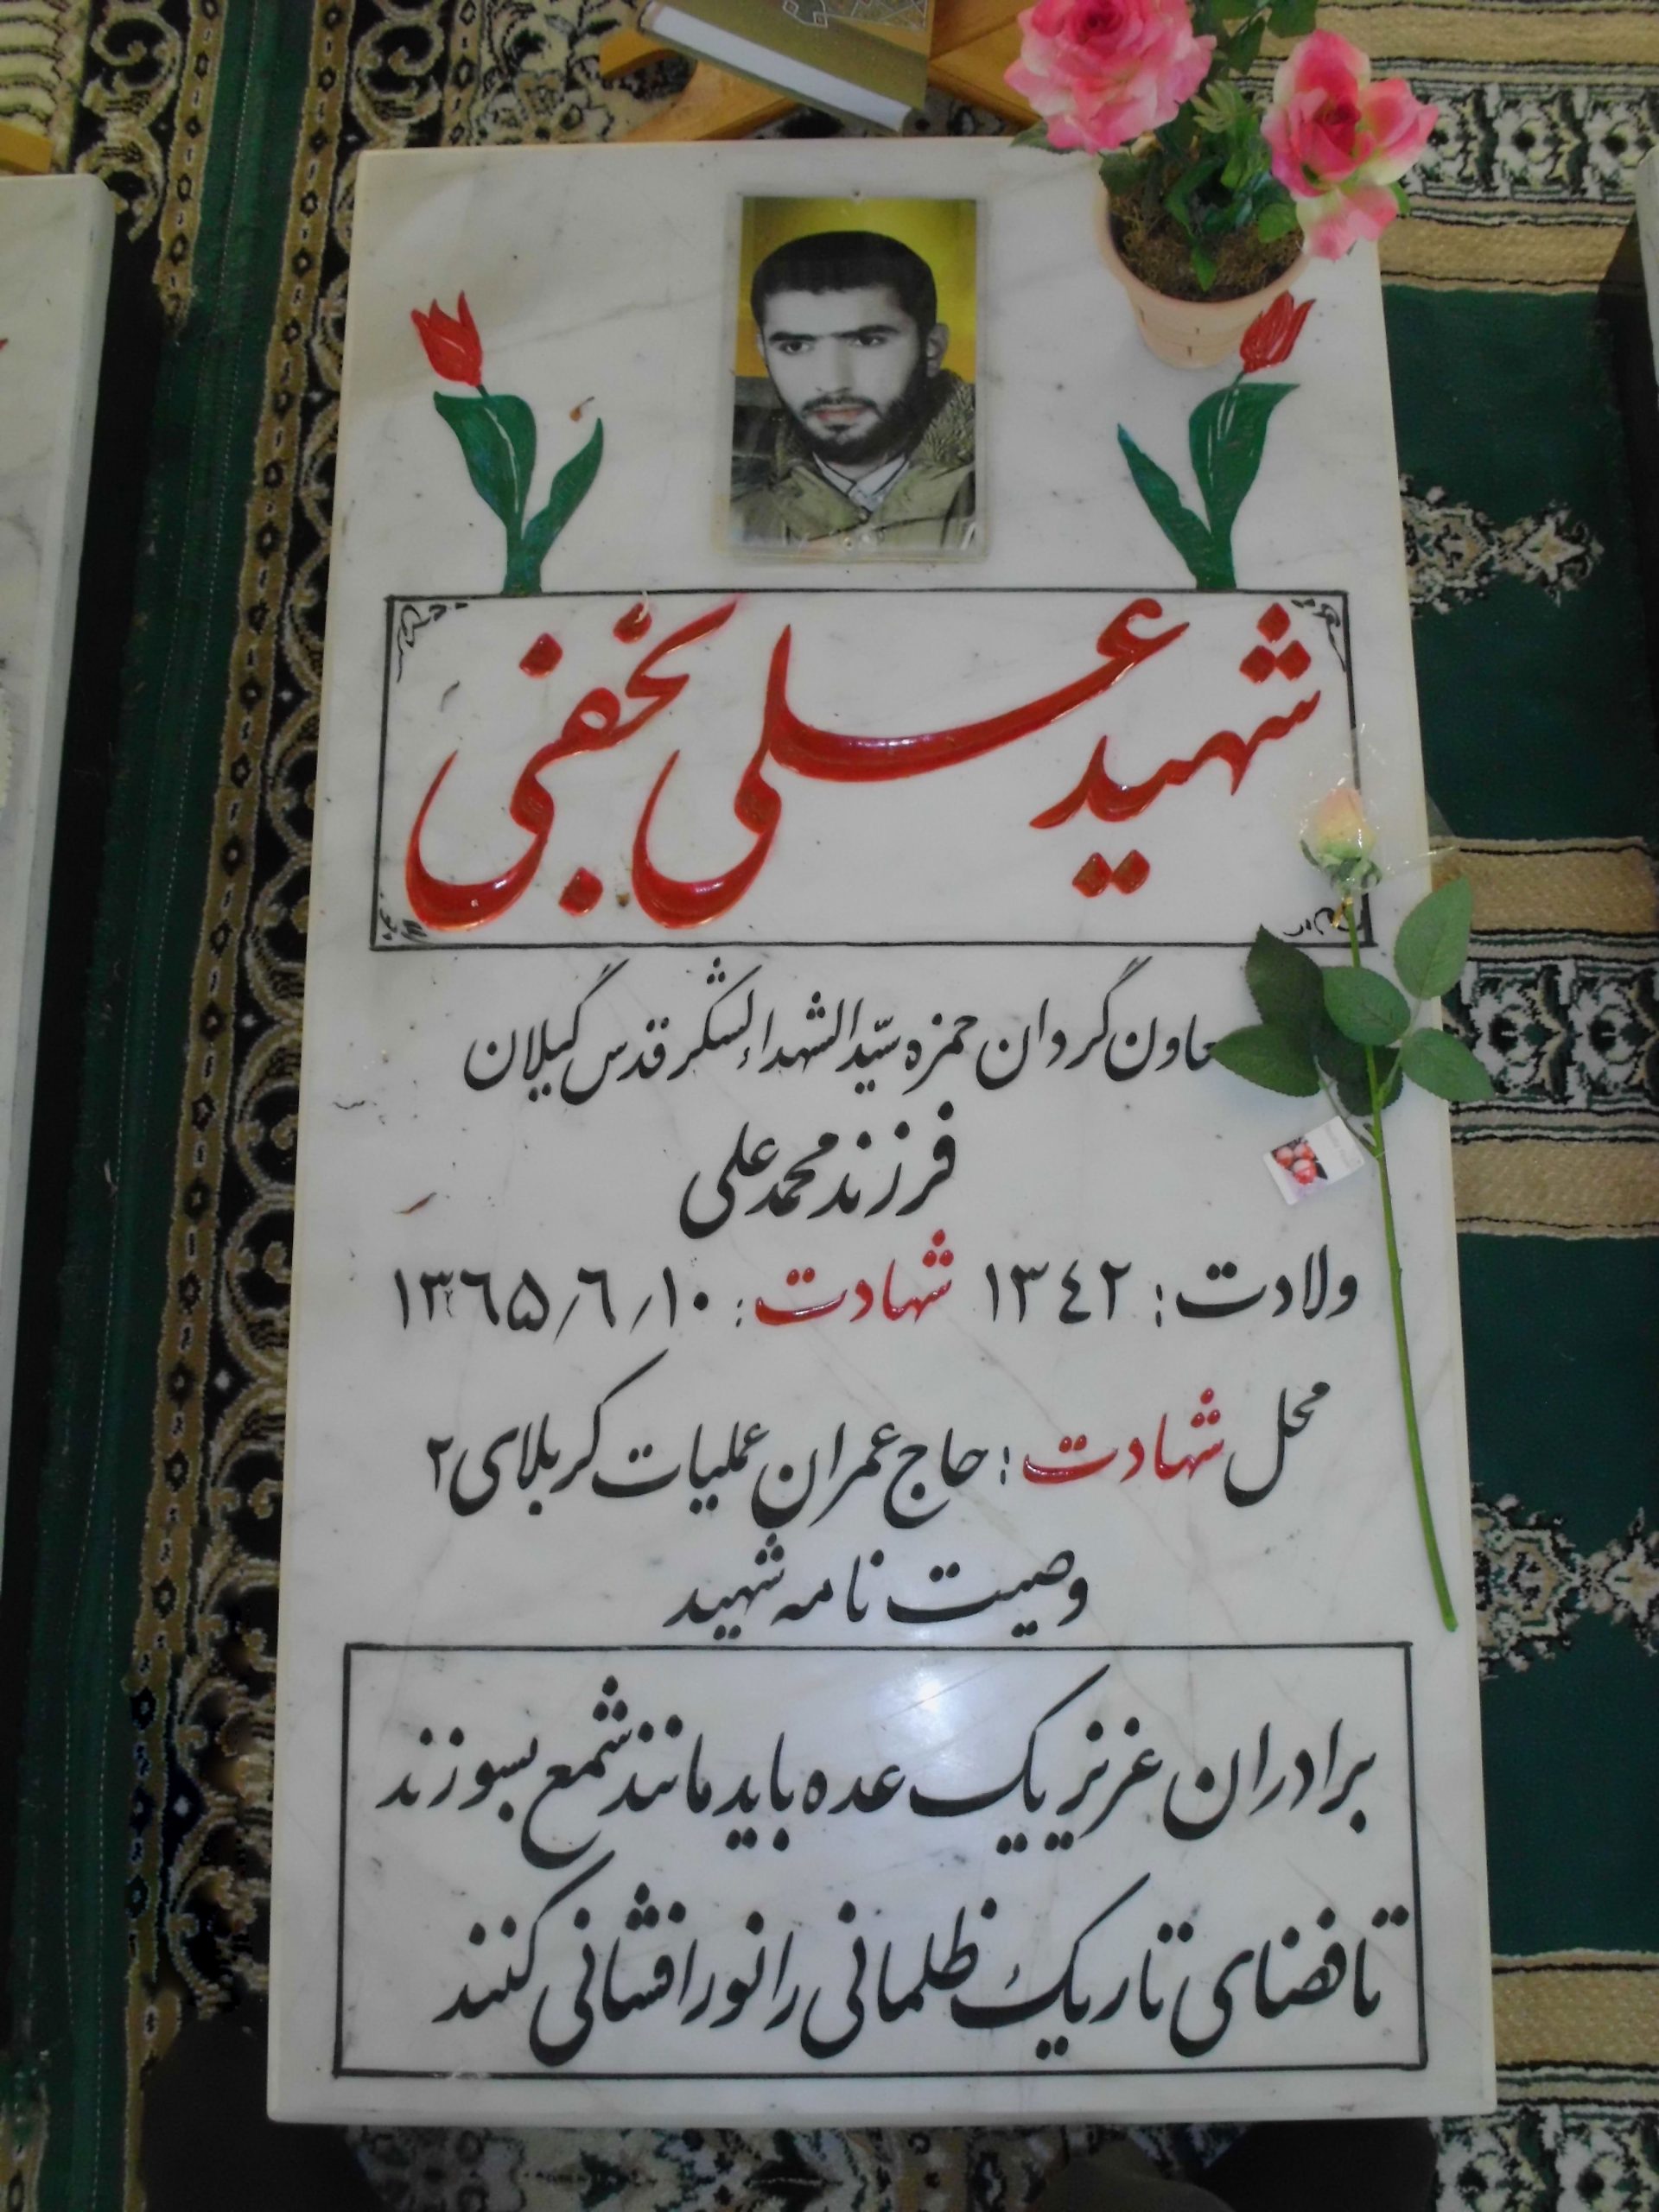 شهید علی نجفی
معاون گردان حمزه سیّدالشهداء لشگر قدس گیلان
فرزند محمد علی
ولادت: ۱۳٤۲ شهادت: ۱۳٦۵/٦/۱۰
محل شهادت: حاج عمران عملیات کربلای ۲
وصیت نامه شهید
برادران عزیز یک عده باید مانند شمع بسوزند
تا فضای تاریک ظلمانی را نور افشانی کنند